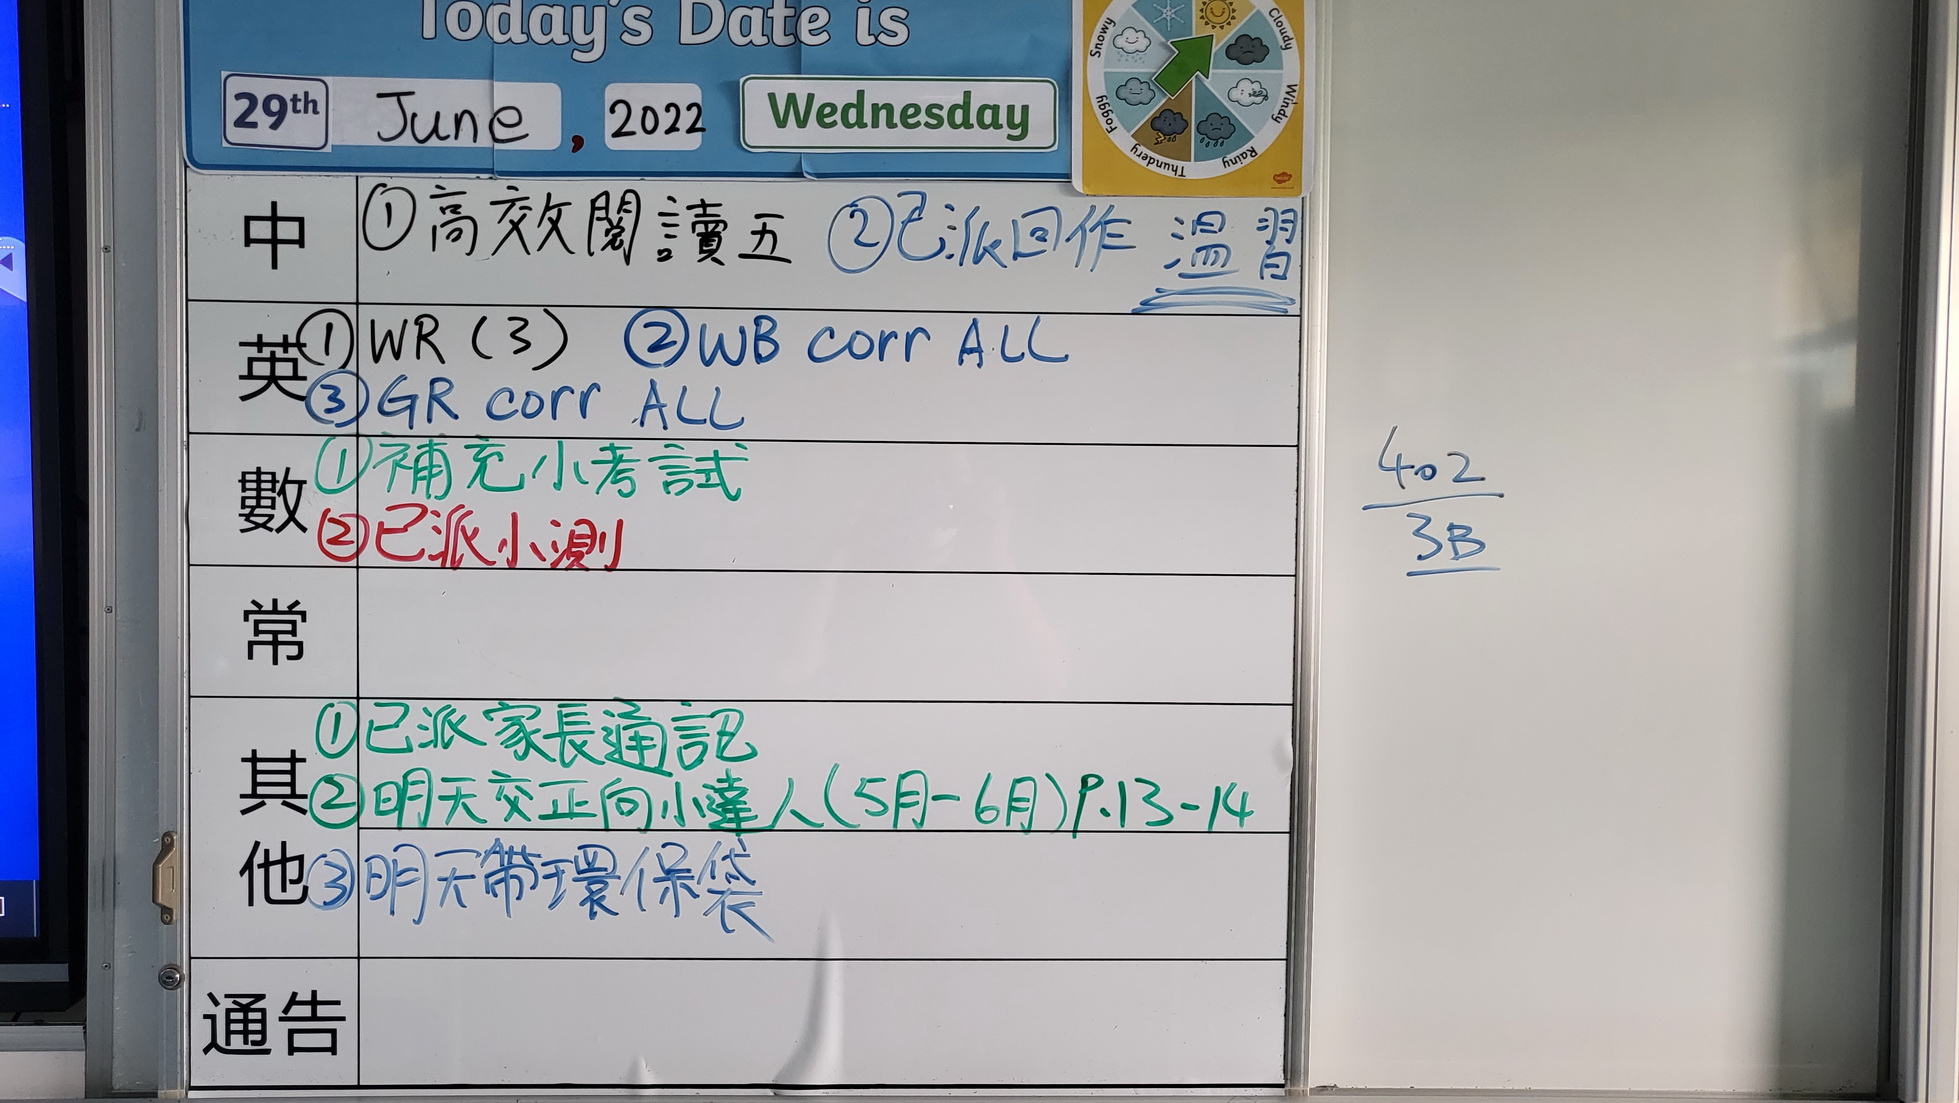 Today's Date is
29th June, 2022 Wednesday
Snowy Cloudy Windy Rainy Thundery Foggy
中 ①高效閱讀五 ②已派回作 溫習
英 ①WR (3) ②WB corr ALL
③GR corr ALL
數 ①補充小考試
②已派小測
常
其他 ①已派家長通訊
②明天交正向小達人(5月-6月)P.13-14
③明天帶環保袋
通告
402
3B